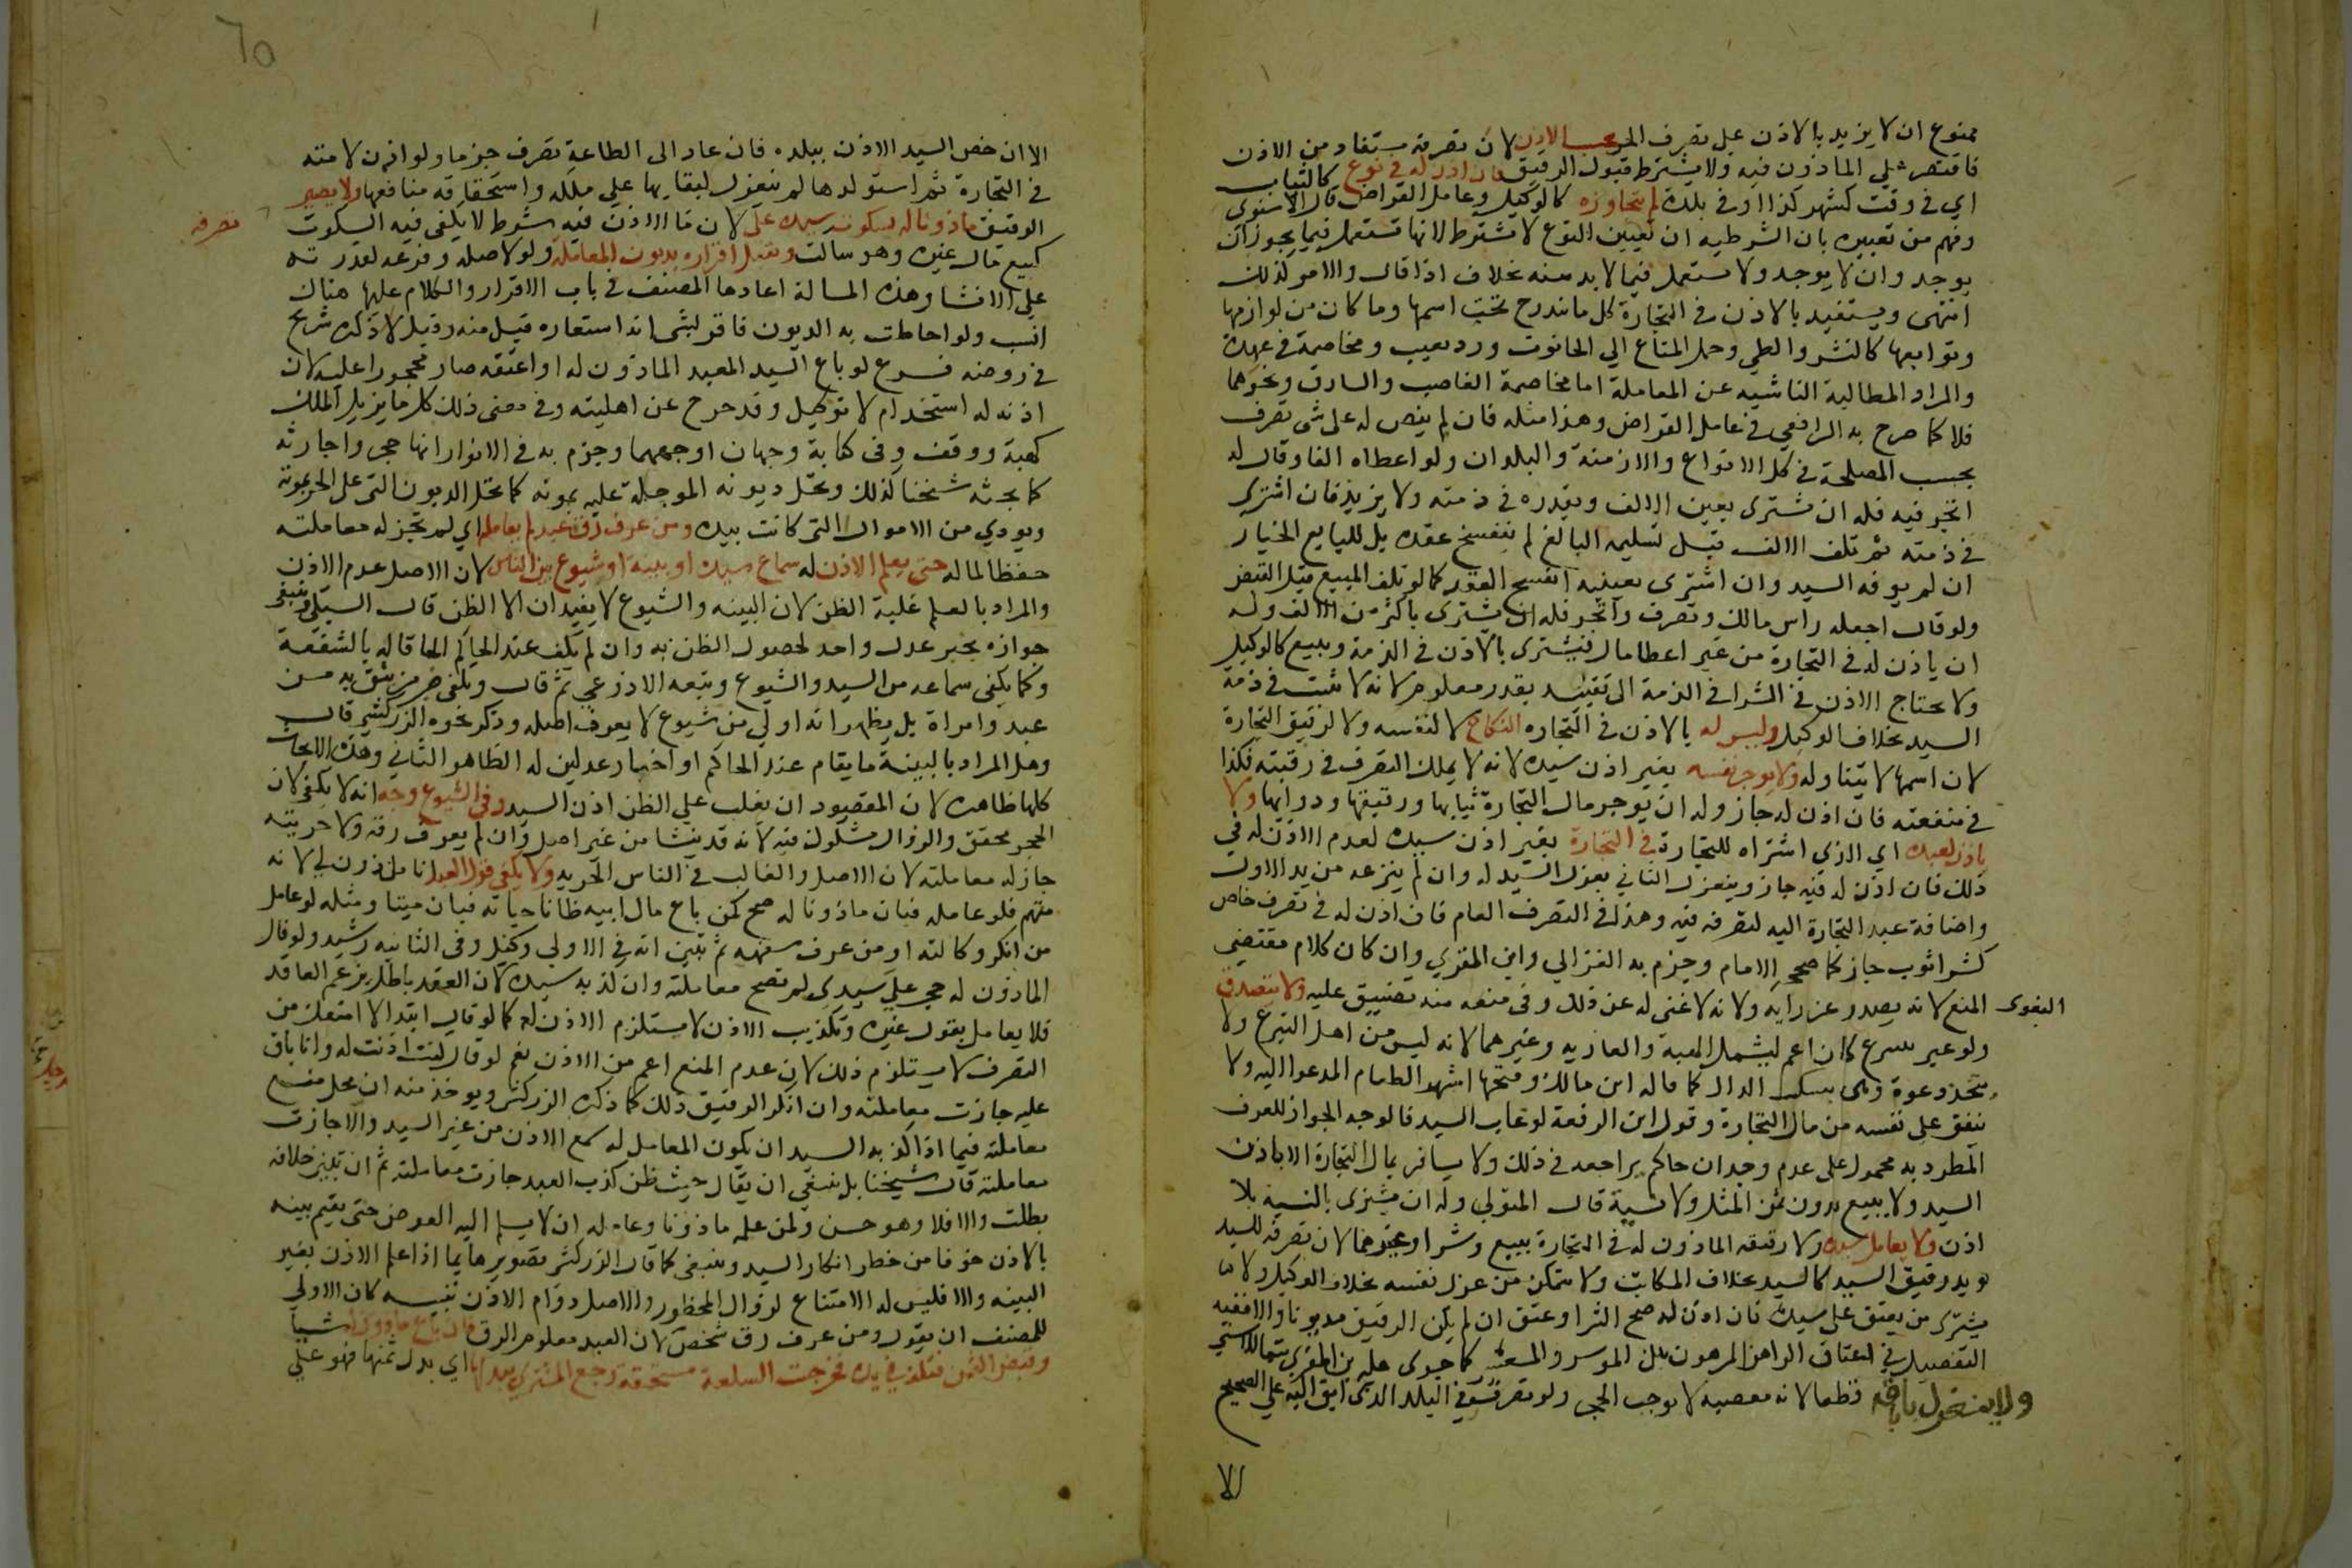 ممنوع ان لا يزيد بالاذن على تصرف الحر بحسب الاذن لان تصرفه مستفاد من الاذن
فاقتصر على الماذون فيه ولا يشترط قبول الرقيق فان اذن له في نوع كالثياب
اي في وقت كشهر كذا او في بلدة لم يتجاوزه كالوكيل وعامل القراض قال الاسنوي
وفهم من تعبيره بان الشرطيه ان تعيين النوع لا يشترط لانها تستعمل فيما يجوز ان
يوجد وان لا يوجد ولا تستعمل فيما لا بد منه بخلاف اذا قال والامر كذلك
انتهى ويستفيد بالاذن في التجارة كل ما يندرج تحت اسمها وما كان من لوازمها
وتوابعها كالنشر والطي وحمل المتاع الي الحانوت ورد بعيب ومخاصمة في عهدة
والمراد المطالبة الناشيه عن المعاملة اما مخاصمة الغاصب والسارق ونحوهما
فلا كما صرح به الرافعي في عامل القراض وهذا مثله فان لم ينص له على شي تصرف
بحسب المصلحة في كل الانواع والازمنة والبلدان ولو اعطاه الفا وقال له
اتجر فيه فله ان يشترى بعين الالف وبقدره في ذمته ولا يزيد فان اشترى
في ذمته ثم تلف الالف قبل تسليمه البايع لم ينفسخ عقده بل للبايع الخيار
ان لم يوفه السيد وان اشترى بعينه انفسخ العقد كما لو تلف المبيع قبل القبض
ولو قال اجعله راس مالك وتصرف واتجر فله ان يشترى باكثر من الالف وله
ان ياذن له في التجارة من غير اعطا مال فيشترى بالاذن في الذمة ويبيع كالوكيل
ولا يحتاج الاذن في الشرا في الذمة الى تقييد بقدر معلوم لانه لا يثبت في ذمة
السيد بخلاف الوكيل وليس له بالاذن في التجاره النكاح لا لنفسه ولا لرقيق التجارة
لان اسمها لا يتناوله ولا يوجر نفسه بغير اذن سيده لانه لا يملك التصرف في رقبته فكذا
في منفعته فان اذن له جاز وله ان يوجر مال التجارة ثيابها ورقيقها ودوابها ولا
ياذن لعبده اي الذي اشتراه للتجارة في التجارة بغير اذن سيده لعدم الاذن له في
ذلك فان اذن له فيه جاز وينعزل الثاني بعزل السيد له وان لم ينزعه من يد الاول
واضافة عبد التجارة اليه لتصرفه فيه وهذا في التصرف العام فان اذن له في تصرف خاص
كشرا ثوب جاز كما صححه الامام وجزم به الغزالي وابن المقري وان كان كلام مقتضي
البغوى المنع لانه يصدر عن رايه ولانه لا غنى له عن ذلك وفي منعه منه تضييق عليه ولا يتصدق
ولو عبر بتبرع كان اعم ليشمل الهبة والعاريه وغيرهما لانه ليس من اهل التبرع ولا
يتخذ دعوة وهى بتثليث الدال كما قاله ابن مالك وفتحها اشهر الطعام المدعو اليه ولا
ينفق على نفسه من مال التجارة وقول ابن الرفعة لو غاب السيد فالوجه الجواز للعرف
المطرد به محمول على عدم وجدان حاكم يراجعه في ذلك ولا يسافر بمال التجارة الا باذن
السيد ولا يبيع بدون ثمن المثل ولا نسية قال المتولي وله ان يشترى بالنسية بلا
اذن ولا يعامل سيده ولا رقيقه الماذون له في التجارة ببيع وشرا وغيرهما لان تصرفه للسيد
ويد رقيق السيد كالسيد بخلاف المكاتب ولا يتمكن من عزل نفسه بخلاف الوكيل ولا
يشترى من يعتق على سيده فان اذن له صح الشرا وعتق ان لم يكن الرقيق مديونا والا ففيه
التفصيل في اعتاق الراهن المرهون بين الموسر والمعسر كما جرى عليه ابن المقري تبعا للاسنوي
ولا ينعزل باباقه قطعا لانه معصيه لا يوجب الحجر وله تصرف في البلد الذى ابق اليه على الصحيح
الا
٦٥
الا ان خص السيد الاذن ببلده فان عاد الى الطاعة تصرف جزما ولو اذن لامته
في التجارة ثم استولدها لم ينعزل لبقايها على ملكه واستحقاقه منافعها ولا يصير
الرقيق ماذونا له بسكوت سيده على لان ما الاذن فيه شرط لا يكفى فيه السكوت
تصرفه
كبيع مال غيره وهو ساكت ويقبل اقراره بديون المعاملة ولو لاصله وفرعه لقدرته
على الانشا وهذه المسالة اعادها المصنف في باب الاقرار والكلام عليها هناك
انسب ولو احاطت به الديون فاقر بشى انه استعاره قبل منه وقيل لا ذكره شريح
في روضه فرع لو باع السيد العبد الماذون له او اعتقه صار محجورا عليه لان
اذنه له استخدام لا توكيل وقد خرج عن اهليته وفي معنى ذلك كل ما يزيل الملك
كهبة ووقف وفي كتابة وجهان اوجههما وجزم به في الانوار انها حجر واجارته
كما بحثه شيخنا كذلك وتحل ديونه الموجلة عليه بموته كما تحل الديون التي على الحر بموته
ويودي من الاموال التي كانت بيده ومن عرف رق عبد لم يعامله اي لم تجز له معاملته
حفظا لماله حتى يعلم الاذن له بسماع سيده او بينة او شيوع بين الناس لان الاصل عدم الاذن
والمراد بالعلم غلبة الظن لان البينه والشيوع لا يفيدان الا الظن قال السبكي وينبغي
جوازه بخبر عدل واحد لحصول الظن به وان لم يكف عند الحاكم الحاقا له بالشفعة
وكما يكفى سماعه من السيد والشيوع وتبعه الاذرعي ثم قال ويكفى خبر من يثق به من
عبد وامراة بل يظهر انه اولي من شيوع لا يعرف اصله وذكر نحوه الزركشي قال
وهل المراد بالبينة ما يقام عند الحاكم او اخبار عدلين له الظاهر الثاني وهذه الابحاث
كلها ظاهره لان المقصود ان يغلب على الظن اذن السيد وفي الشيوع وجه انه لا يكفى لان
الحجر محقق والزوال مشكوك فيه لانه قد ينشا من غير اصل وان لم يعرف رقه ولا حريته
جاز له معاملته لان الاصل والغالب في الناس الحريه ولا يكفي قول العبد انا ماذون لي لانه
متهم فلو عامله فبان ماذونا له صح كمن باع مال ابيه ظانا حياته فبان ميتا ومثله لو عامل
من انكر وكالته او من عرف سفهه ثم تبين انه في الاولى وكيل وفي الثانيه رشيد ولو قال
الماذون له حجر علي سيدى لم تصح معاملته وان كذبه سيده لان العقد باطل بزعم العاقد
فلا يعامل بقول غيره وتكذيب الاذن لا يستلزم الاذن له كما لو قال ابتدا لا امنعك من
التصرف لا يستلزم ذلك لان عدم المنع اعم من الاذن نعم لو قال كنت اذنت له وانا باق
عليه جازت معاملته وان انكر الرقيق ذلك كما ذكره الزركشي ويوخذ منه ان محل منع
معاملته فيما اذا كذبه السيد ان يكون المعامل له سمع الاذن من غير السيد والا جازت
معاملته قال شيخنا بل ينبغي ان يقال حيث ظن كذب العبد جازت معاملته ثم ان تبين خلافه
بطلت والا فلا وهو حسن ولمن علمه ماذونا وعامله ان لا يسلم اليه العوض حتى يقيم بينه
بالاذن خوفا من خطر انكار السيد وينبغي كما قال الزركشي تصويرها بما اذا علم الاذن بغير
البينه والا فليس له الامتناع لزوال المحظور والاصل دوام الاذن تنبيه كان الاولى
للمصنف ان يقول ومن عرف رق شخص لان العبد معلوم الرق فان باع ماذون له شيا
وقبض الثمن فتلف في يده فخرجت السلعة مستحقة رجع المشتري ببدلها اي بدل ثمنها فهو على